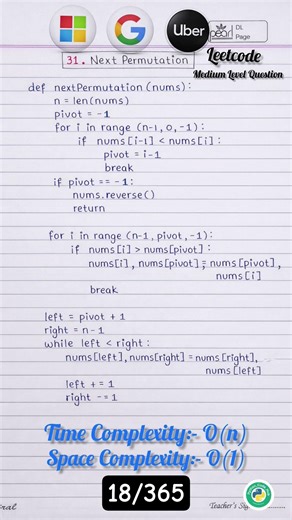 Uber
pearl
DL
Page
Leetcode
Medium Level Question
31. Next Permutation
def nextPermutation (nums):
n = len(nums)
pivot = -1
for i in range (n-1, 0, -1):
if nums[i-1] < nums[i]:
pivot = i-1
break
if pivot == -1:
nums.reverse()
return
for i in range (n-1, pivot, -1):
if nums[i] > nums[pivot]:
nums[i], nums[pivot] = nums[pivot],
nums[i]
break
left = pivot + 1
right = n-1
while left < right:
nums[left], nums[right] = nums[right],
nums[left]
left += 1
right -= 1
Time Complexity:- O(n)
Space Complexity:- O(1)
18/365
Teacher's